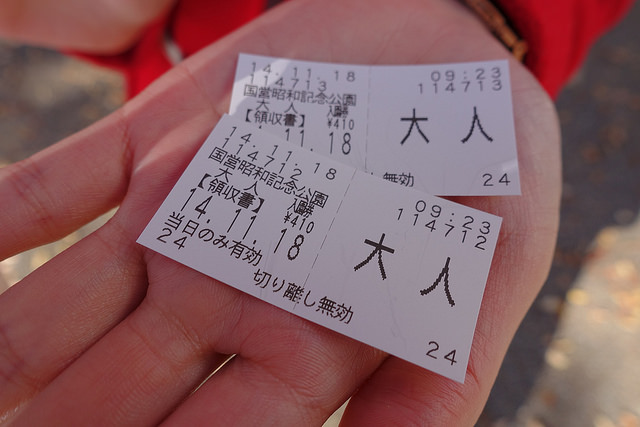 14.11.18
114713
国営昭和記念公園
大人 入園券
【領収書】 ¥410
14.11.18
無効
09:23
114713
大人
24
14.11.18
114712
国営昭和記念公園
大人 入園券
【領収書】 ¥410
14.11.18
当日のみ有効
24
切り離し無効
09:23
114712
大人
24